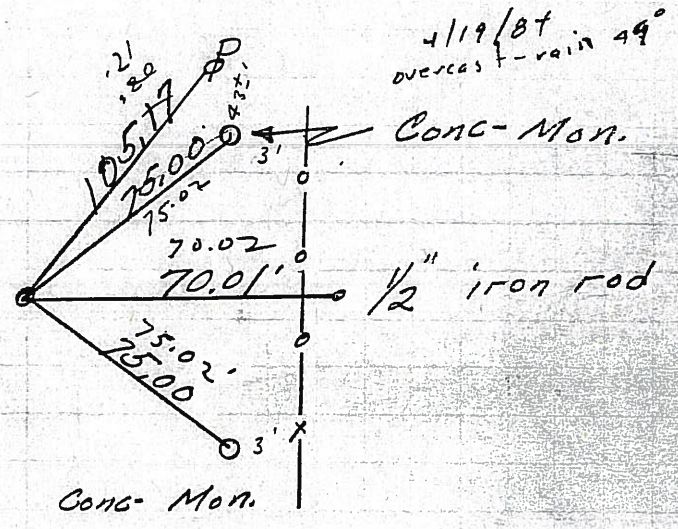 4/19/84
overcast - rain 49°
.21
.80
P
105.17
75.00'
75.02
3'
Conc- Mon.
70.02
70.01'
1/2" iron rod
75.02'
75.00
3'
Conc- Mon.